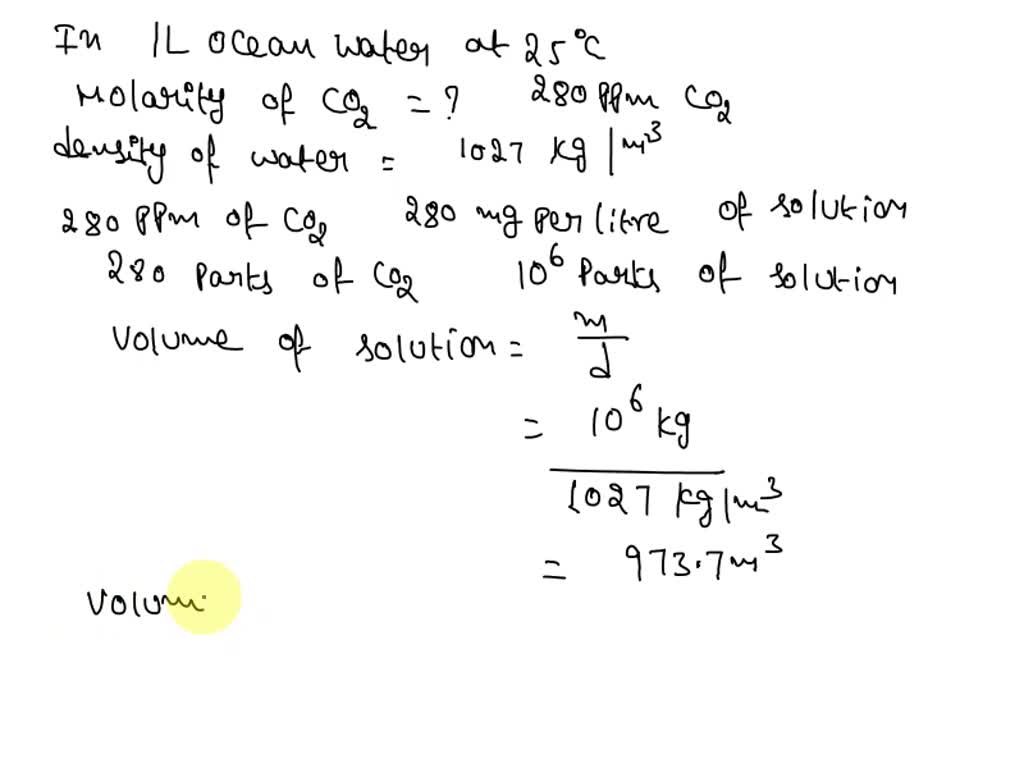 In 1L ocean water at 25°C
Molarity of CO₂ = ? 280 PPm CO₂
density of water = 1027 kg/m³
280 PPm of CO₂ 280 mg per litre of solution
280 Parts of CO₂ 10⁶ Parts of solution
Volume of solution = m/d
= 10⁶ kg
1027 kg/m³
= 973.7m³
Volum